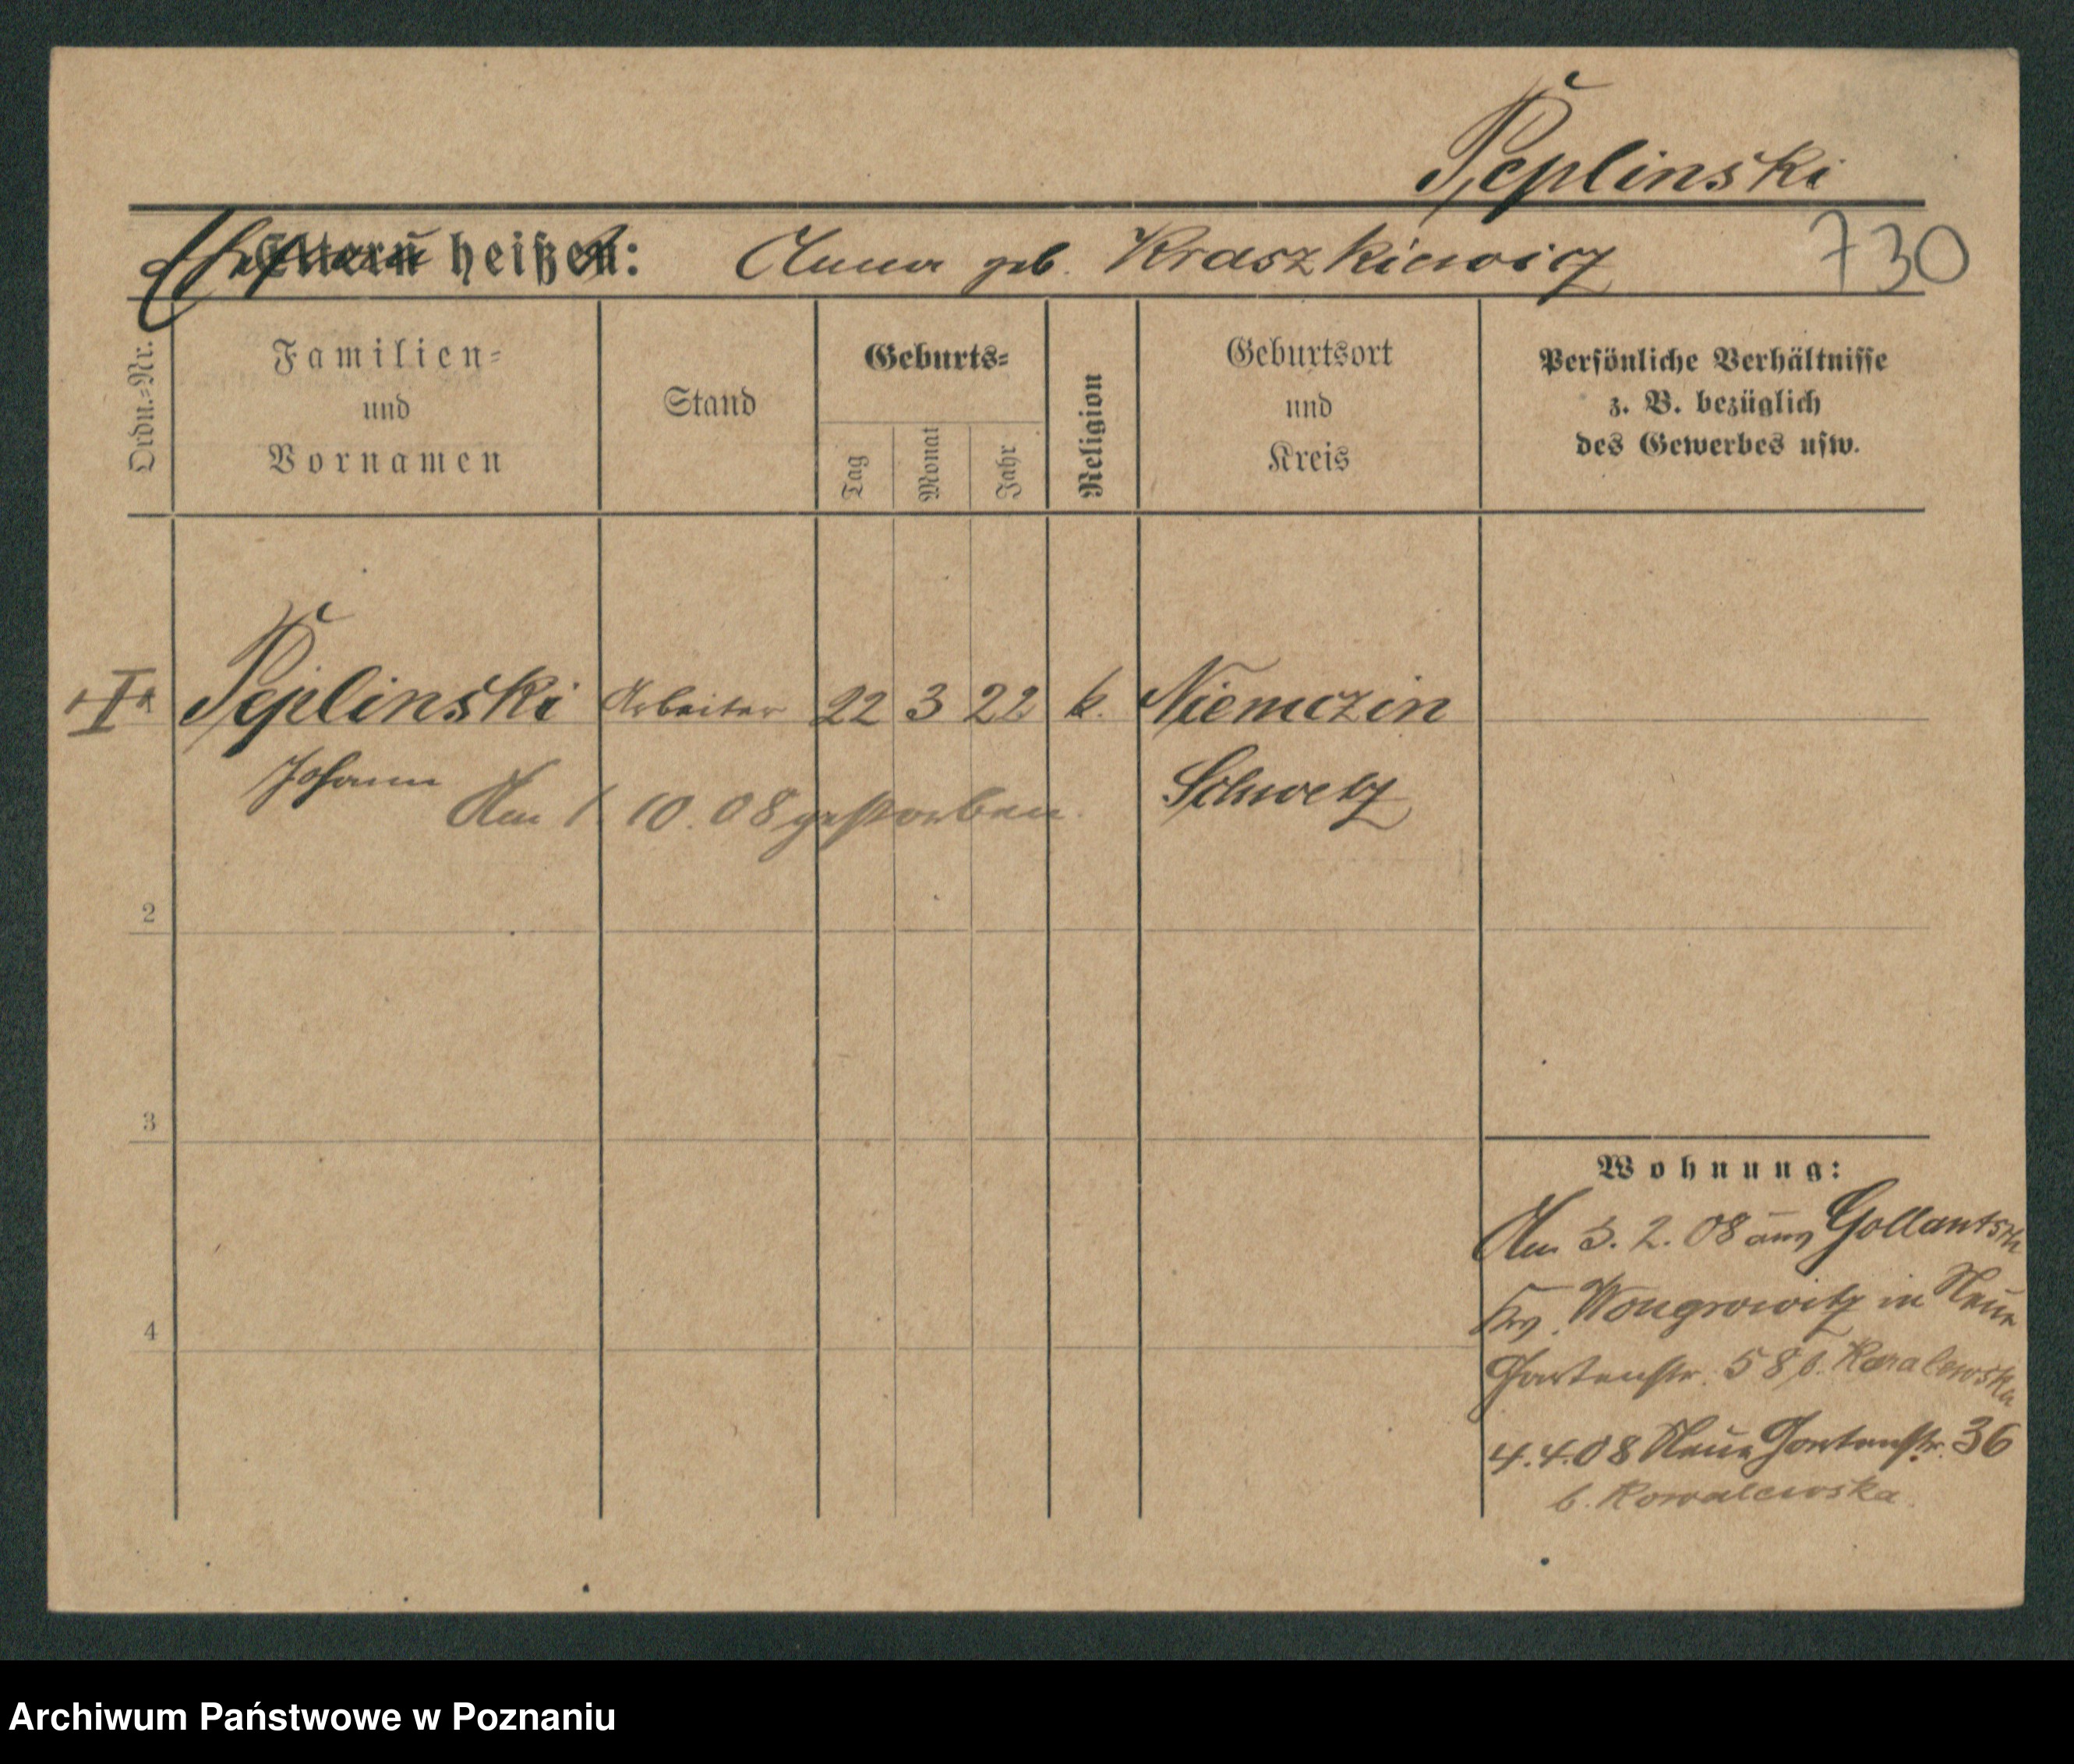 Peplinski
Ehefrau heißt: Anna geb. Kraszkiewicz 730
Ordn.-Nr.
Familien-
und
Vornamen
Stand
Geburts-
Tag
Monat
Jahr
Religion
Geburtsort
und
Kreis
Persönliche Verhältnisse
z. B. bezüglich
des Gewerbes usw.
I Peplinski Arbeiter 22 3 22 k. Niemczin
Johann Schwetz
Am 1 10. 08 gestorben.
2
3
4
Wohnung:
Am 3. 2. 08 aus Gollantsch
Krs. Wongrowitz in Neue
Gartenstr. 58 b. Kowalewska
4.4.08 Neue Gartenstr. 36
b. Kowalewska.
Archiwum Państwowe w Poznaniu